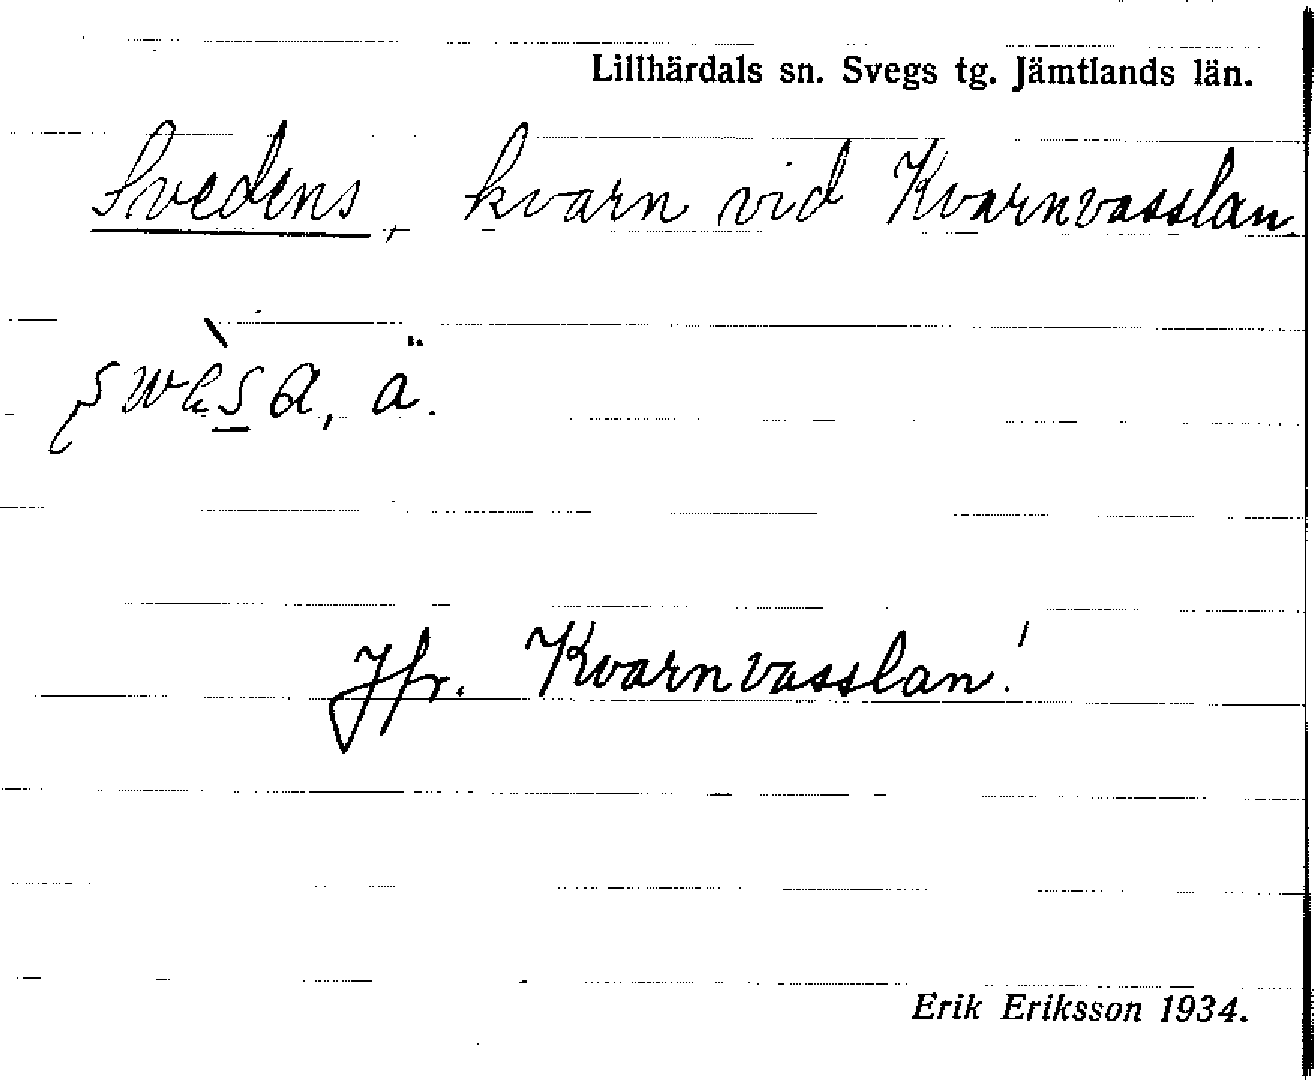 Lillhärdals sn. Svegs tg. Jämtlands län.
Svedens, kvarn vid Kvarnvasslan.
ä.
Jfr. Kvarnvasslan!
Erik Eriksson 1934.